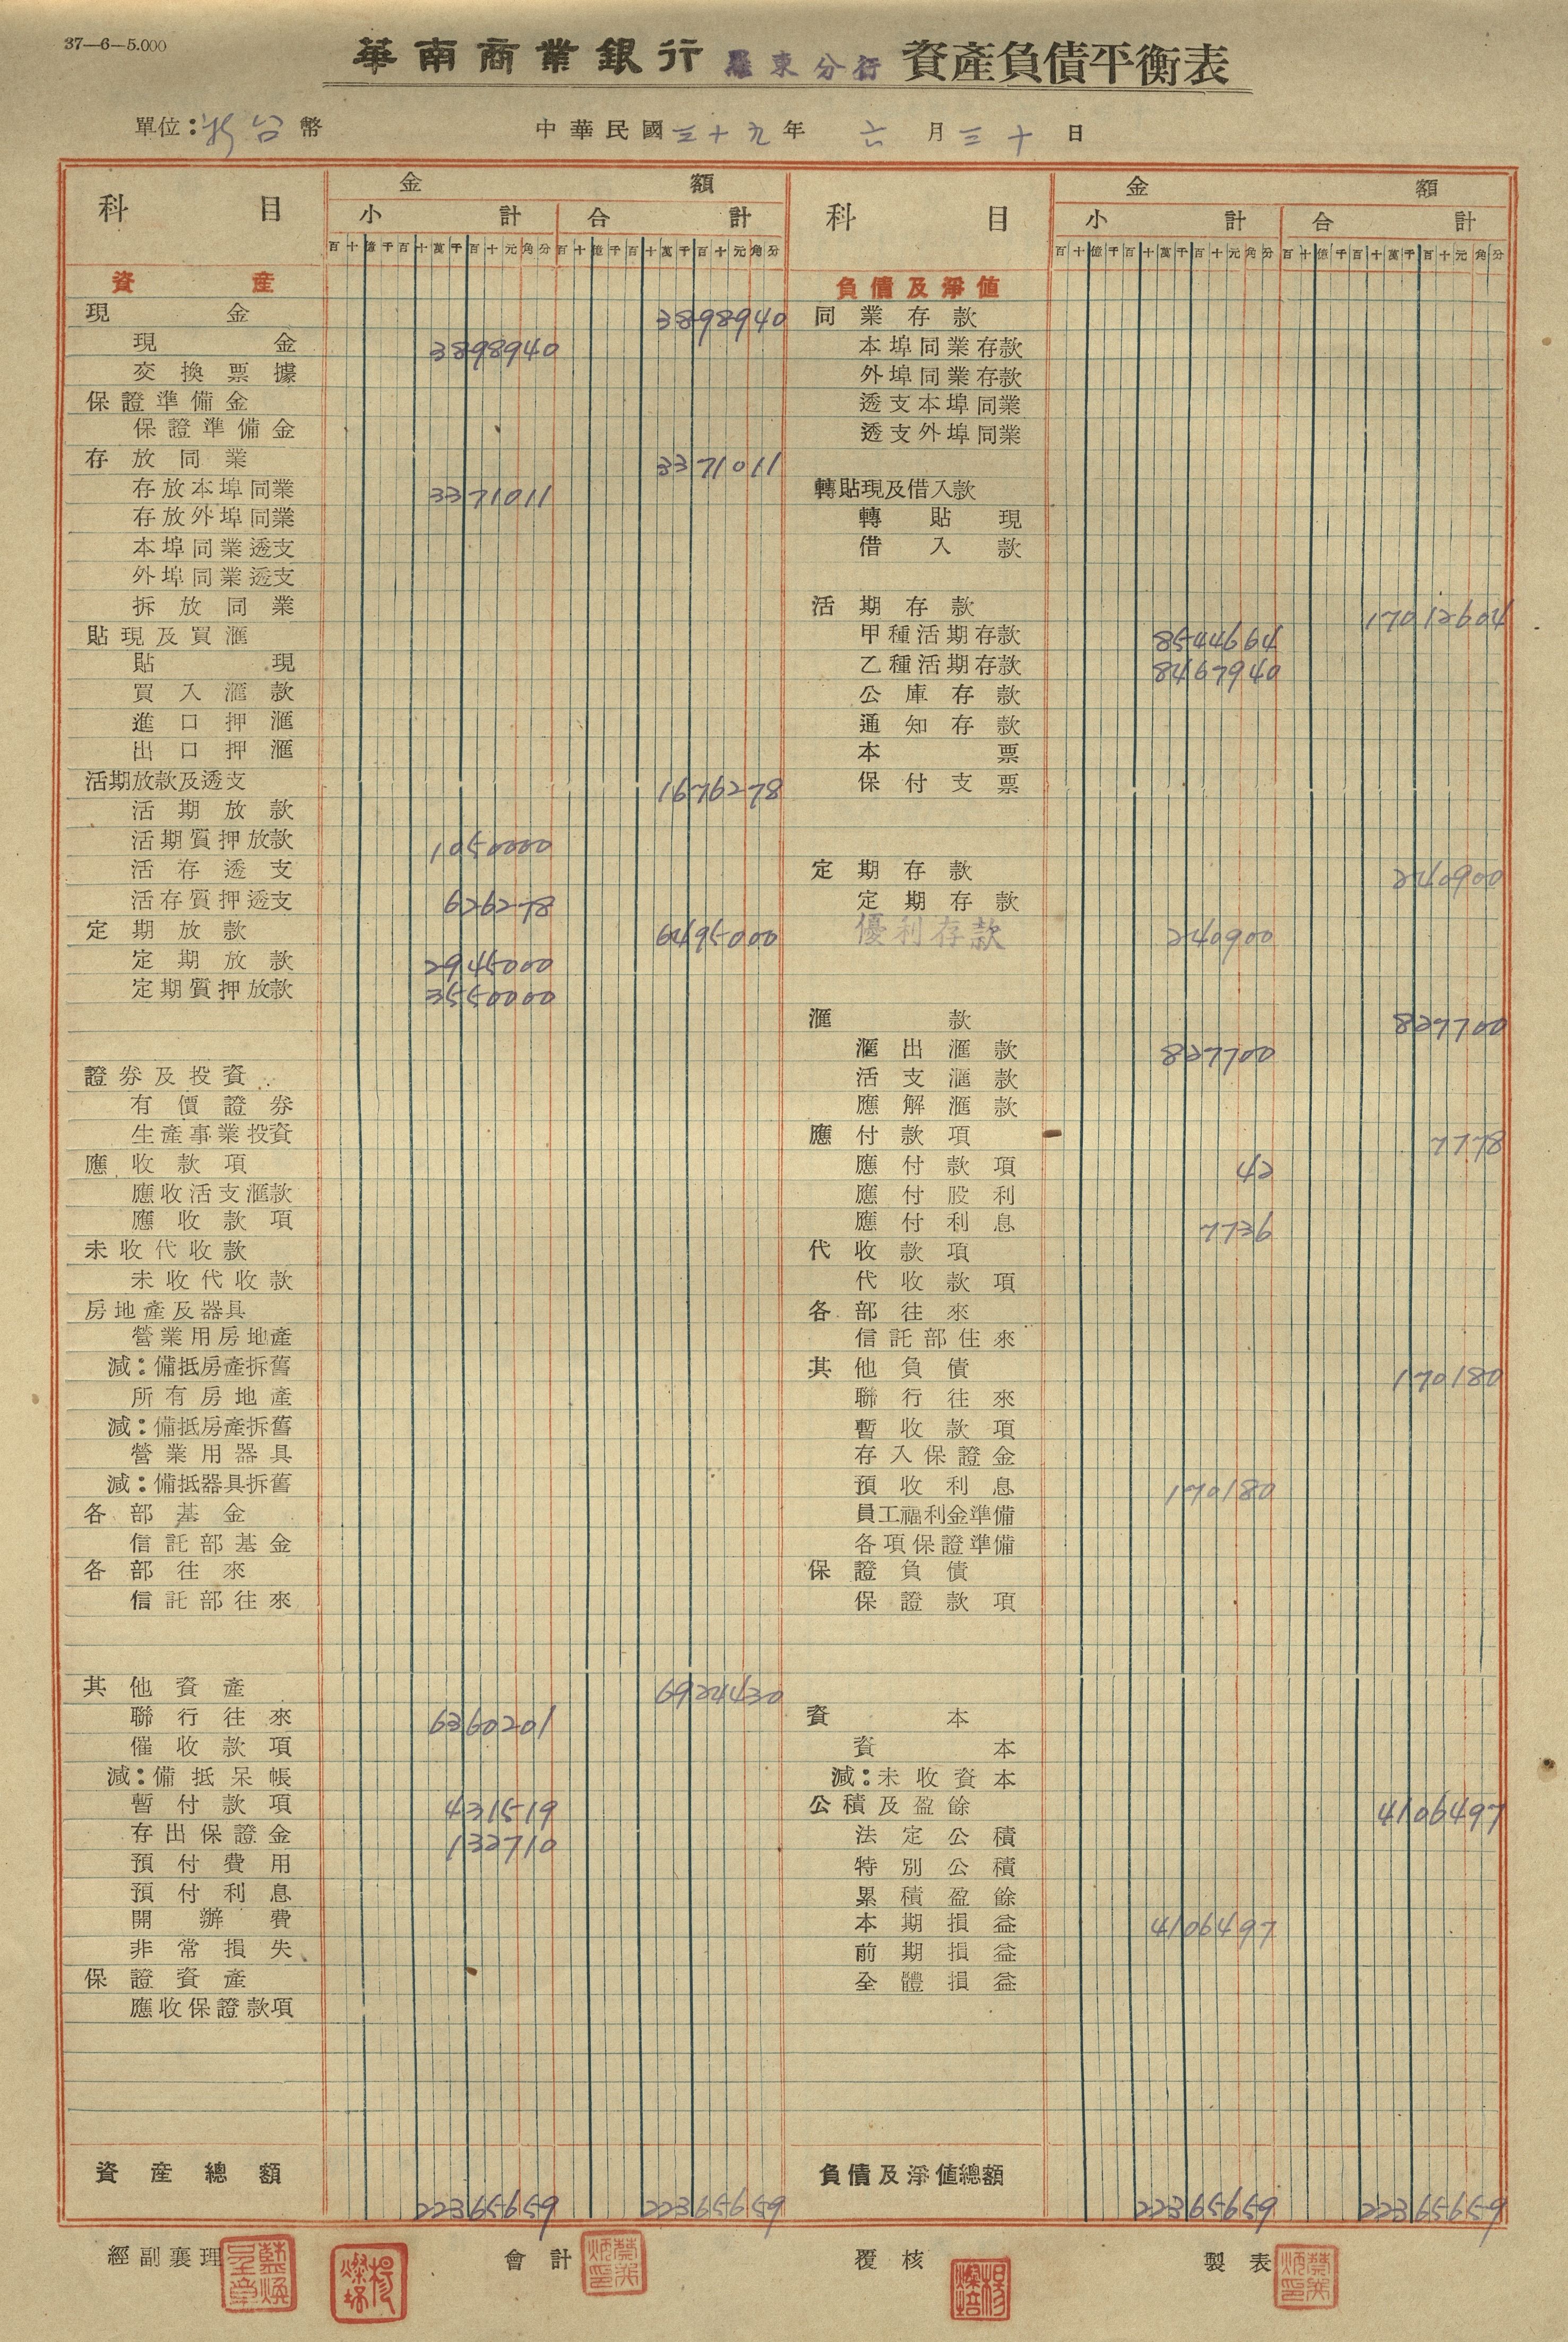 37—6—5.000
華南商業銀行 羅東分行 資產負債平衡表
單位：新台幣 中華民國三十九年 六月三十日
科目 金額 科目 金額
小計 合計 小計 合計
百十億千百十萬千百十元角分 百十億千百十萬千百十元角分 百十億千百十萬千百十元角分 百十億千百十萬千百十元角分
資產
現金 3898940
現金 3898940
交換票據
保證準備金
保證準備金
存放同業 3371011
存放本埠同業 3371011
存放外埠同業
本埠同業透支
外埠同業透支
拆放同業
貼現及買滙
貼現
買入滙款
進口押滙
出口押滙
活期放款及透支 1676278
活期放款
活期質押放款 1050000
活存透支
活存質押透支 626278
定期放款 6495000
定期放款 2945000
定期質押放款 3550000
證券及投資
有價證券
生產事業投資
應收款項
應收活支滙款
應收款項
未收代收款
未收代收款
房地產及器具
營業用房地產
減：備抵房產拆舊
所有房地產
減：備抵房產拆舊
營業用器具
減：備抵器具拆舊
各部基金
信託部基金
各部往來
信託部往來
其他資產 6924430
聯行往來 6360201
催收款項
減：備抵呆帳
暫付款項 431519
存出保證金 132710
預付費用
預付利息
開辦費
非常損失
保證資產
應收保證款項
資產總額 22365659 22365659
負債及淨值
同業存款
本埠同業存款
外埠同業存款
透支本埠同業
透支外埠同業
轉貼現及借入款
轉貼現
借入款
活期存款 17012604
甲種活期存款 8544664
乙種活期存款 8467940
公庫存款
通知存款
本票
保付支票
定期存款 240900
定期存款
優利存款 240900
滙款 827700
滙出滙款 827700
活支滙款
應解滙款
應付款項 7778
應付款項 42
應付股利
應付利息 7736
代收款項
代收款項
各部往來
信託部往來
其他負債 170180
聯行往來
暫收款項
存入保證金
預收利息 170180
員工福利金準備
各項保證準備
保證負債
保證款項
資本
資本
減：未收資本
公積及盈餘 4106497
法定公積
特別公積
累積盈餘
本期損益 4106497
前期損益
全體損益
負債及淨值總額 22365659 22365659
經副襄理 會計 覆核 製表